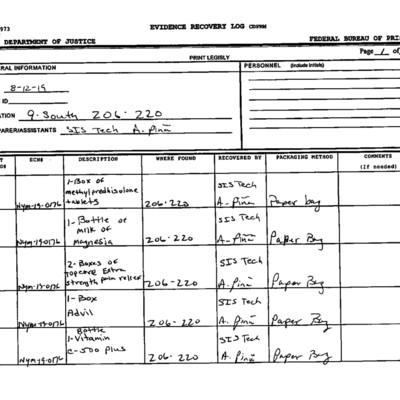 973
EVIDENCE RECOVERY LOG CDFRM
DEPARTMENT OF JUSTICE
FEDERAL BUREAU OF PRI
PRINT LEGIBLY
Page 1 of
RAL INFORMATION
PERSONNEL (Include Initials)
8-12-19
ID
ATION 9-South 206-220
PARER/ASSISTANTS SIS Tech A. Pina
ECN# DESCRIPTION WHERE FOUND RECOVERED BY PACKAGING METHOD COMMENTS
(If needed)
1-Box of SIS Tech
methylprednisolone
tablets
Nym-19-0176 206-220 A. Pina Paper bag
1-Bottle of SIS Tech
milk of
Nym-19-0176 magnesia 206-220 A-Pina Paper Bag
2-Boxes of SIS Tech
Topcare Extra
Nym-19-0176 strength pain relief 206-220 A. Pina Paper Bag
1-Box SIS Tech
Advil
Nym-19-0176 206-220 A. Pina Paper Bag
Bottle
1-Vitamin SIS Tech
Nym-19-0176 C-500 plus 206-220 A. Pina Paper Bag